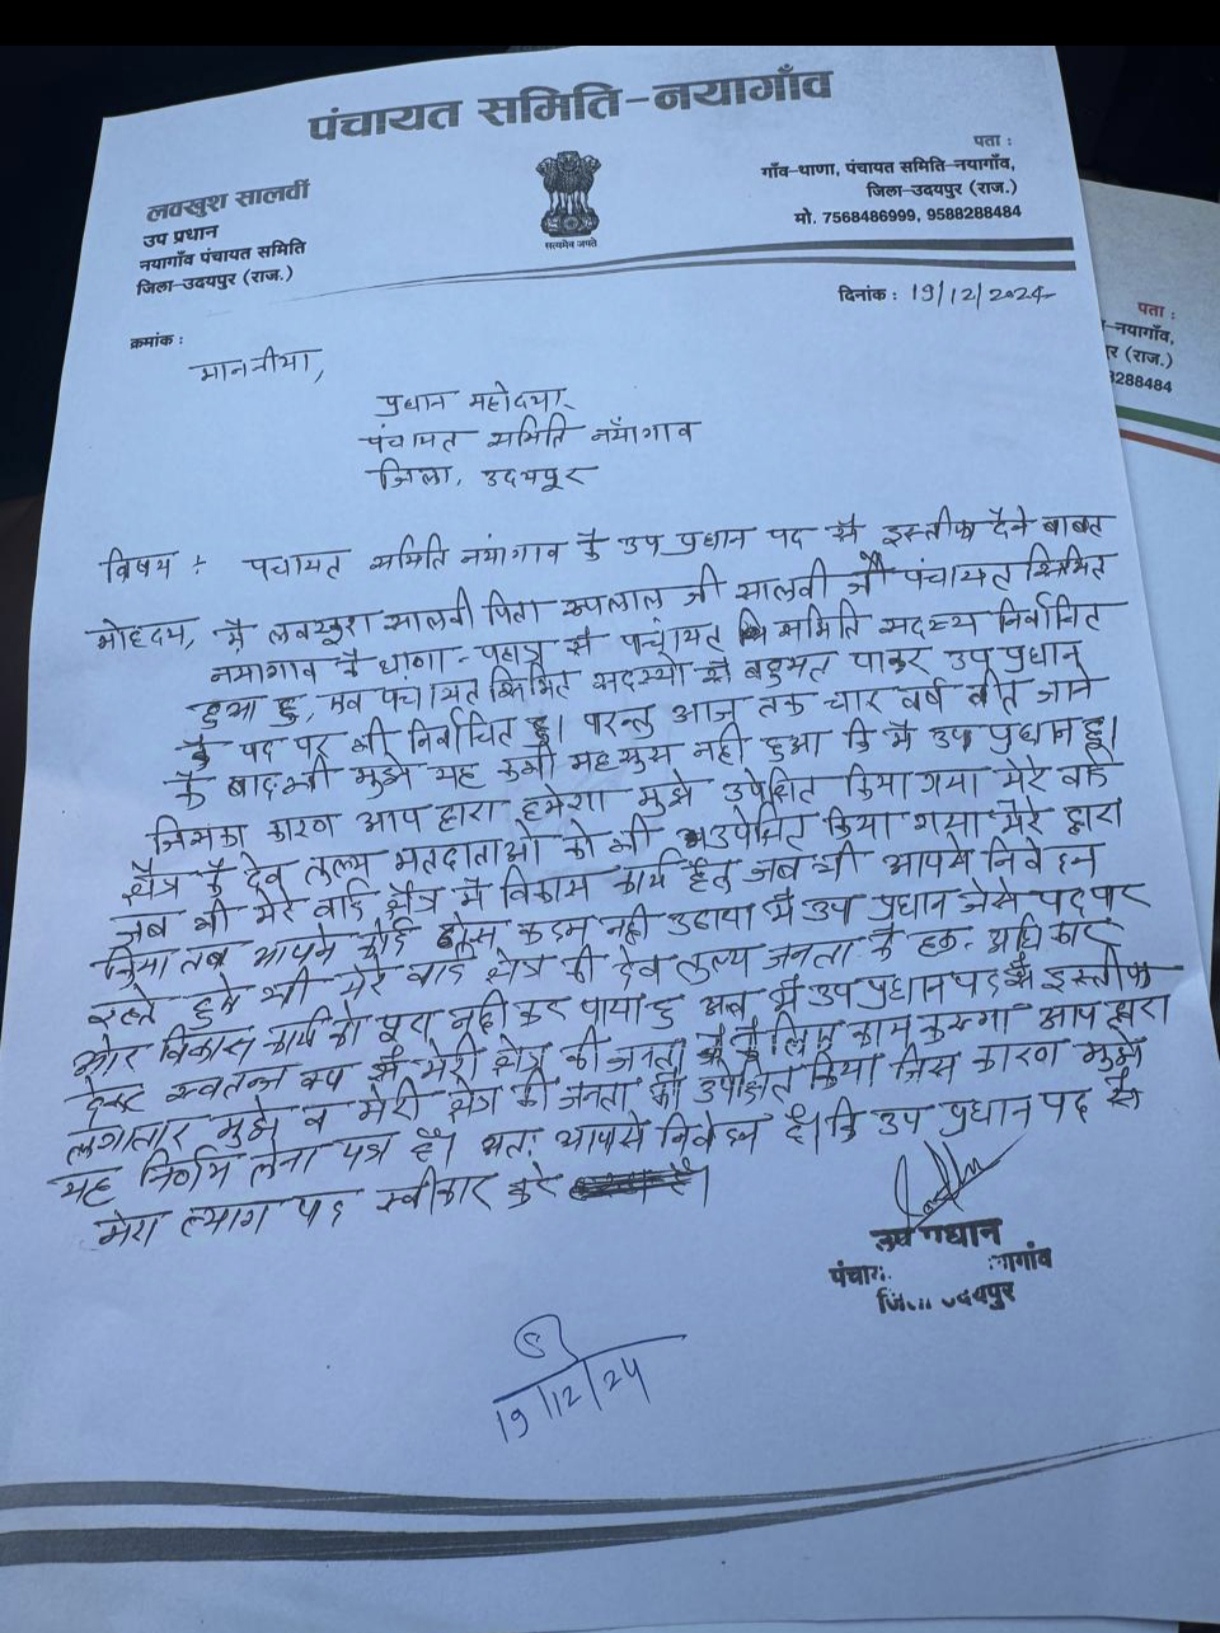 पंचायत समिति-नयागाँव
लवखुश सालवीं
उप प्रधान
नयागाँव पंचायत समिति
जिला-उदयपुर (राज.)
सत्यमेव जयते
पता :
गाँव-थाणा, पंचायत समिति-नयागाँव,
जिला-उदयपुर (राज.)
मो. 7568486999, 9588288484
दिनांक : 19/12/2024
क्रमांक :
माननीया,
प्रधान महोदया
पंचायत समिति नयाँगाव
जिला, उदयपूर
विषय : पचायत समिति नयांगाव के उप प्रधान पद से इस्तीफा देने बाबत
मोहदय, मै लवखुश सालवी पिता रुपलाल जी सालवी जो पंचायत समिति
नयागाव के थाणा - से पंचायत समिति सदस्य निर्वाचित
हुआ हु, एव पंचायत समिति सदस्यो से बहुमत पाकर उप प्रधान
के पद पर भी निर्वाचित हु। परन्तु आज तक चार वर्ष बीत जाने
के बाद भी मुझे यह कभी महसुस नही हुआ कि मै उप प्रधान हु।
जिसका कारण आप द्वारा हमेशा मुझे उपेक्षित किया गया मेरे वार्ड
क्षैत्र के देव तुल्य मतदाताओ को भी उपेक्षित किया गया मेरे द्वारा
जब भी मेरे वार्ड क्षैत्र मे विकास कार्य हेतु जब भी आपसे निवेदन
किया तब आपने कोई ठोस कदम नही उठाया मै उप प्रधान जेसे पद पर
रहते हुये भी मेरे वार्ड क्षेत्र की देव तुल्य जनता के हक - अधिकार
और विकास कार्य को पूरा नही कर पाया हु अब मै उप प्रधान पद से इस्तीफा
देकर स्वतन्त्र रूप से मेरी क्षेत्र की जनता के लिए काम करुगा आप द्वारा
लगातार मुझे व मेरी क्षेत्र की जनता को उपेक्षित किया जिस कारण मुझे
यह निर्णय लेना पड़ा है। अतः आपसे निवेदन है। कि उप प्रधान पद से
मेरा त्याग पद स्वीकार करे
उप प्रधान
जिला उदयपुर
19/12/24
पता :
-नयागाँव,
र (राज.)
288484